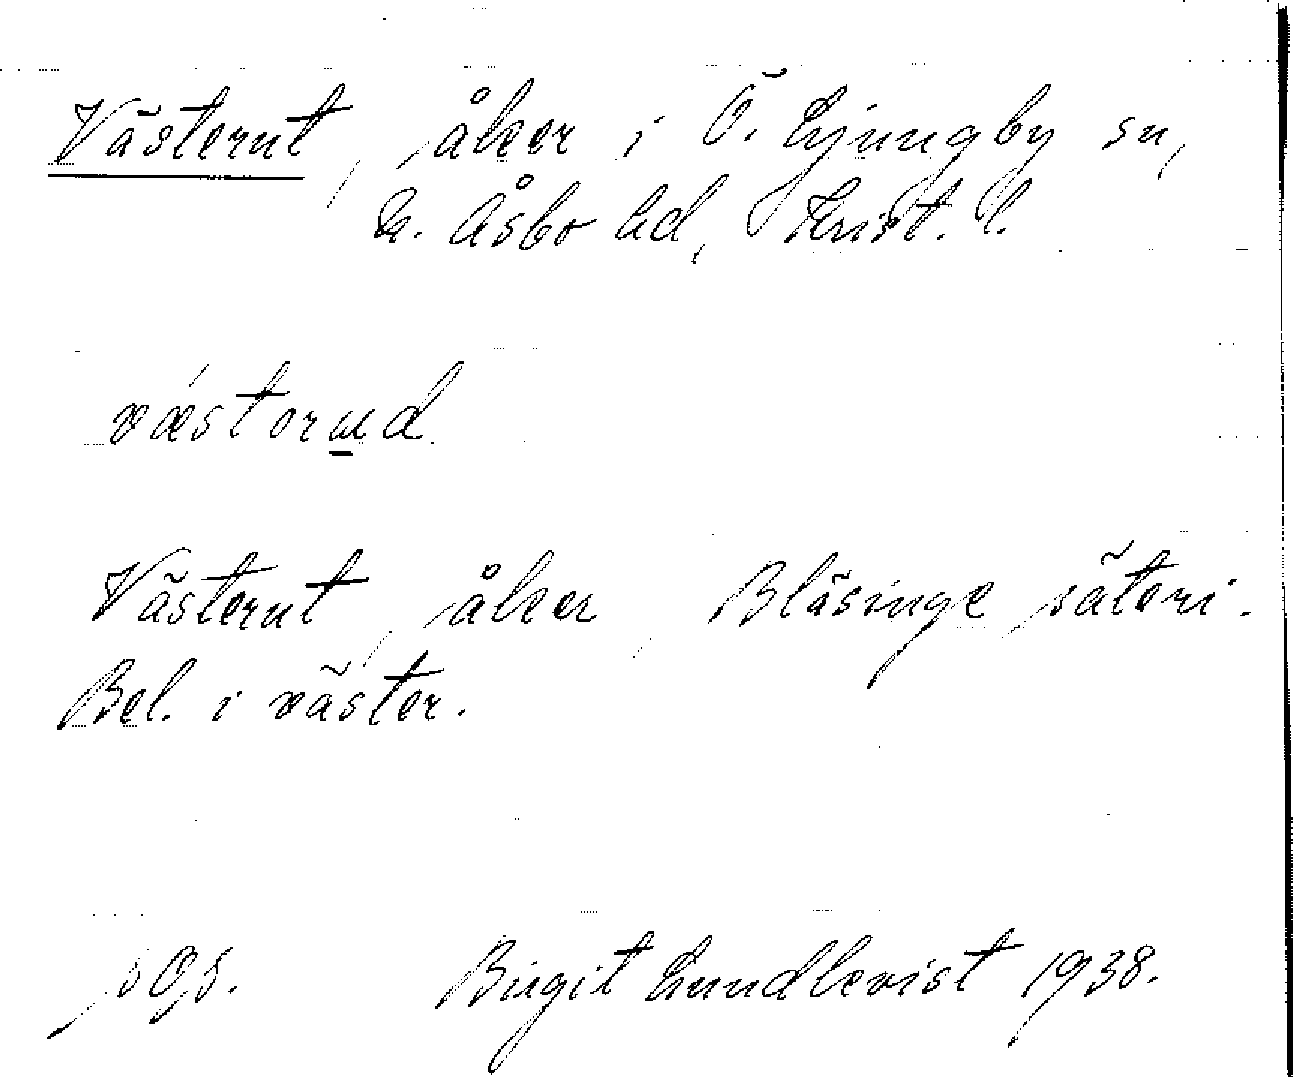 Västerut, åker i Ö. Ljungby sn,
N. Åsbo hd, Krist. l.
væstərud.
Västerut, åker, Blåsinge säteri.
Bel. i väster.
Birgit Lundkvist 1938.